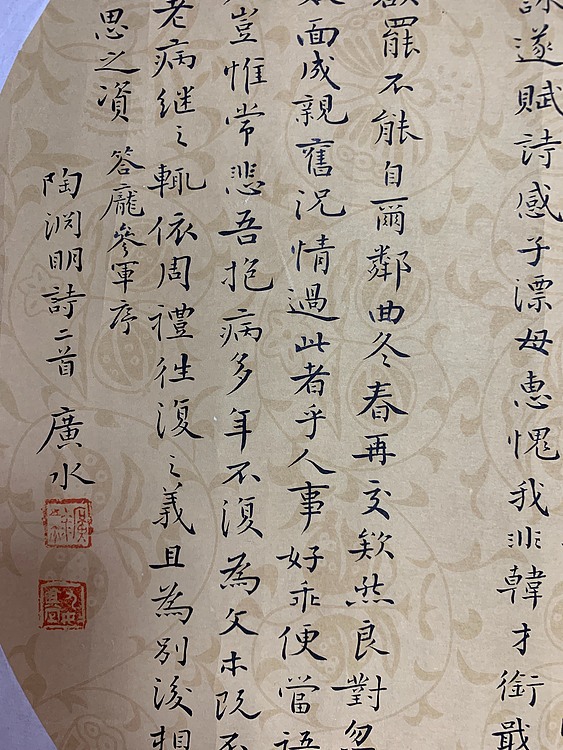 詠遂賦詩感子漂母惠愧我非韓才銜戢
欲罷不能自爾鄰曲冬春再交欵然良對忽
面成親舊況情過此者乎人事好乖便當語
豈惟常悲吾抱病多年不復為文本既不
老病継之輒依周禮徃復之義且為別後相
思之資 答龐參軍序
陶渊明詩二首 廣水